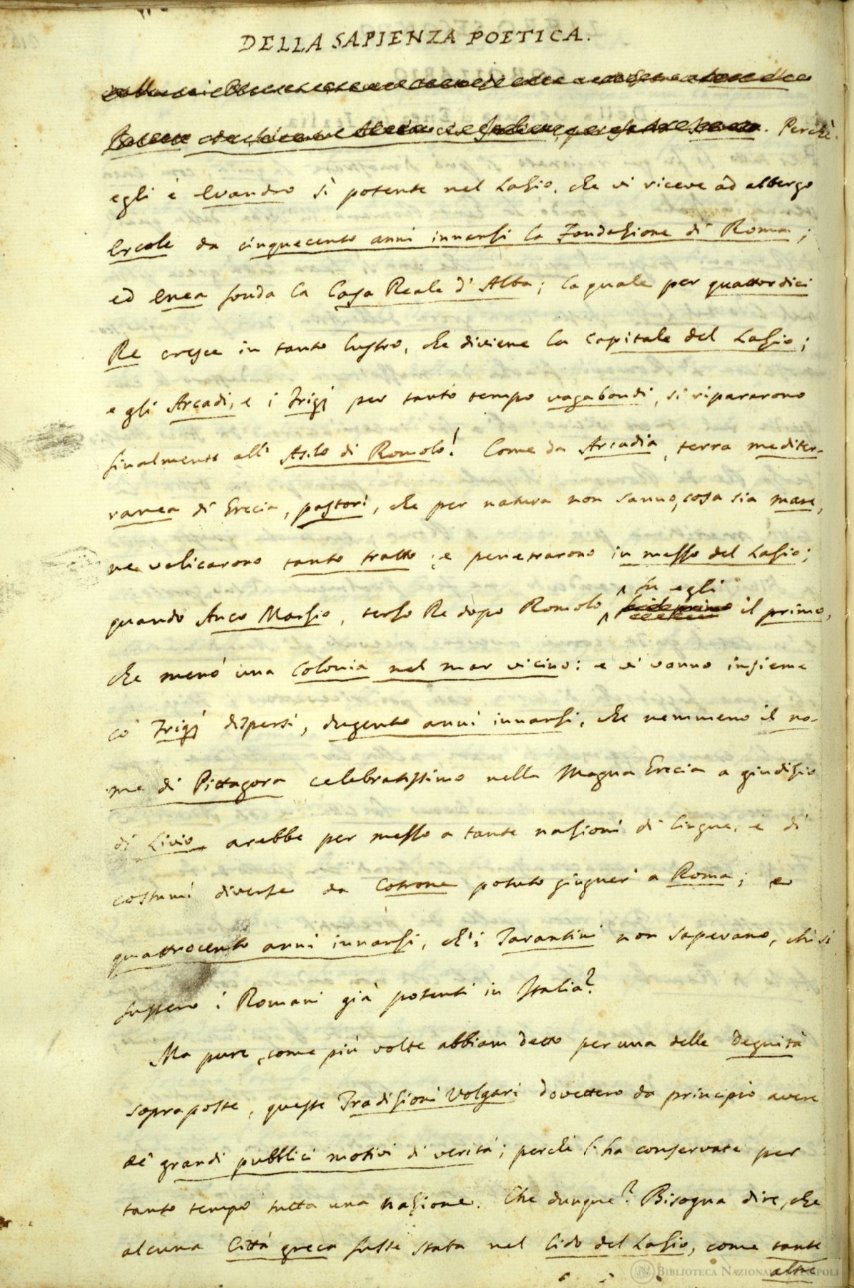 DELLA SAPIENZA POETICA.
Perchè
egli è Evandro sì potente nel Lazio, che vi riceve ad albergo
Ercole da cinquecento anni innanzi la Fondazione di Roma;
ed Enea fonda la Casa Reale d'Alba; la quale per quattordici
Re cresce in tanto lustro, che diviene la Capitale del Lazio;
e gli Arcadi, e i Frigj per tanto tempo vagabondi, si ripararono
finalmente all' Asilo di Romolo! Come da Arcadia, terra mediter-
ranea di Grecia, pastori, che per natura non sanno, cosa sia mare,
ne valicarono tanto tratto; e penetrarono in mezzo del Lazio;
quando Anco Marzio, terzo Re dopo Romolo, fu egli il primo,
che menò una Colonia nel mar vicino: e vi vanno insieme
co' Frigj dispersi, dugento anni innanzi, che nemmeno il no-
me di Pittagora celebratissimo nella Magna Grecia a giudizio
di Livio, arebbe per mezzo a tante nazioni di lingue, e di
costumi diverse da Cotrone potuto giugner' a Roma; e
quattrocento anni innanzi, ch'i Tarantini non sapevano, chi si
fussero i Romani già potenti in Italia?
Ma pure, come più volte abbiam detto per una delle Degnità
sopraposte, queste Tradizioni Volgari dovettero da principio avere
de' grandi pubblici motivi di verità; perchè l'ha conservate per
tanto tempo tutta una nazione. Che dunque? Bisogna dire, che
alcuna Città greca fusse stata nel lido del Lazio, come tante
altre
BIBLIOTECA NAZIONALE NAPOLI